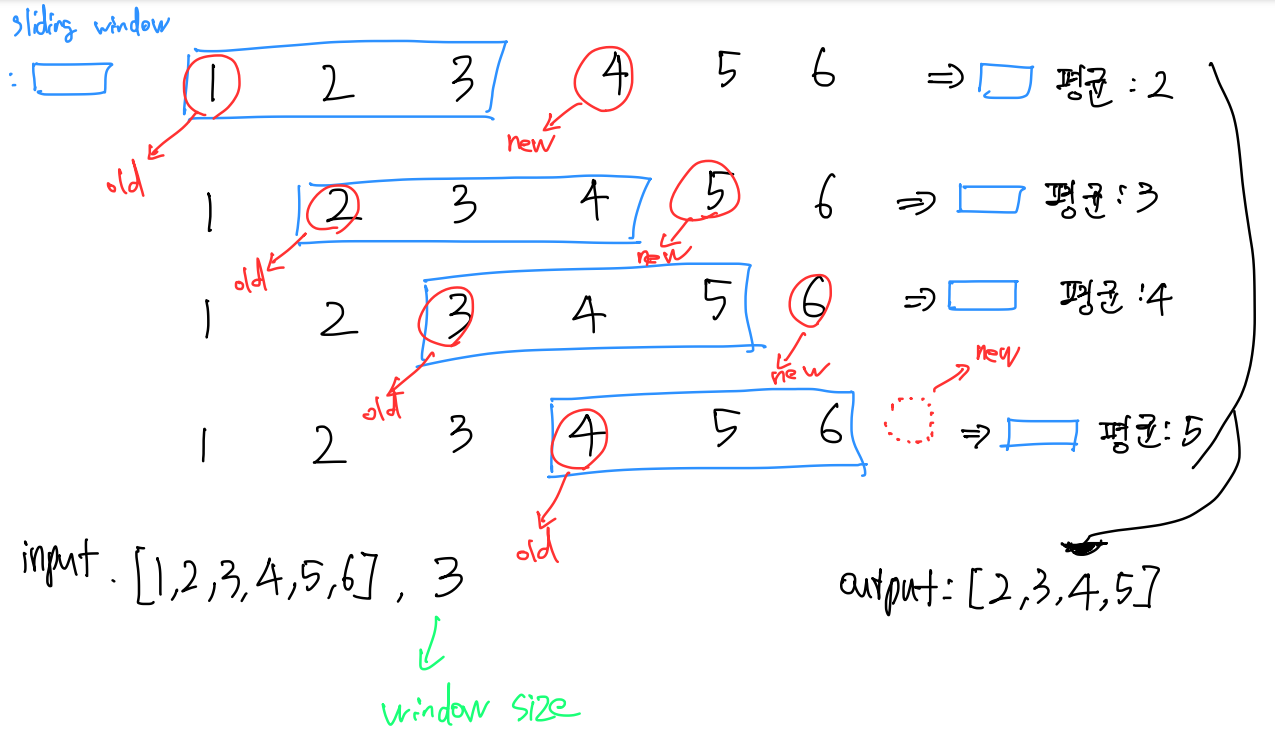 sliding window
: 1 2 3 4 5 6 ⇒ 평균 : 2
old new
1 2 3 4 5 6 ⇒ 평균 : 3
old new
1 2 3 4 5 6 ⇒ 평균 : 4
old new
new
1 2 3 4 5 6 ⇒ 평균 : 5
old
input. [1,2,3,4,5,6], 3
output: [2,3,4,5]
window size